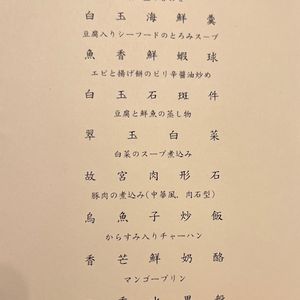 白玉海鮮羹
豆腐入りシーフードのとろみスープ
魚香鮮蝦球
エビと揚げ餅のピリ辛醤油炒め
白玉石斑件
豆腐と鮮魚の蒸し物
翠玉白菜
白菜のスープ煮込み
故宮肉形石
豚肉の煮込み(中華風、肉石型)
烏魚子炒飯
からすみ入りチャーハン
香芒鮮奶酪
マンゴープリン